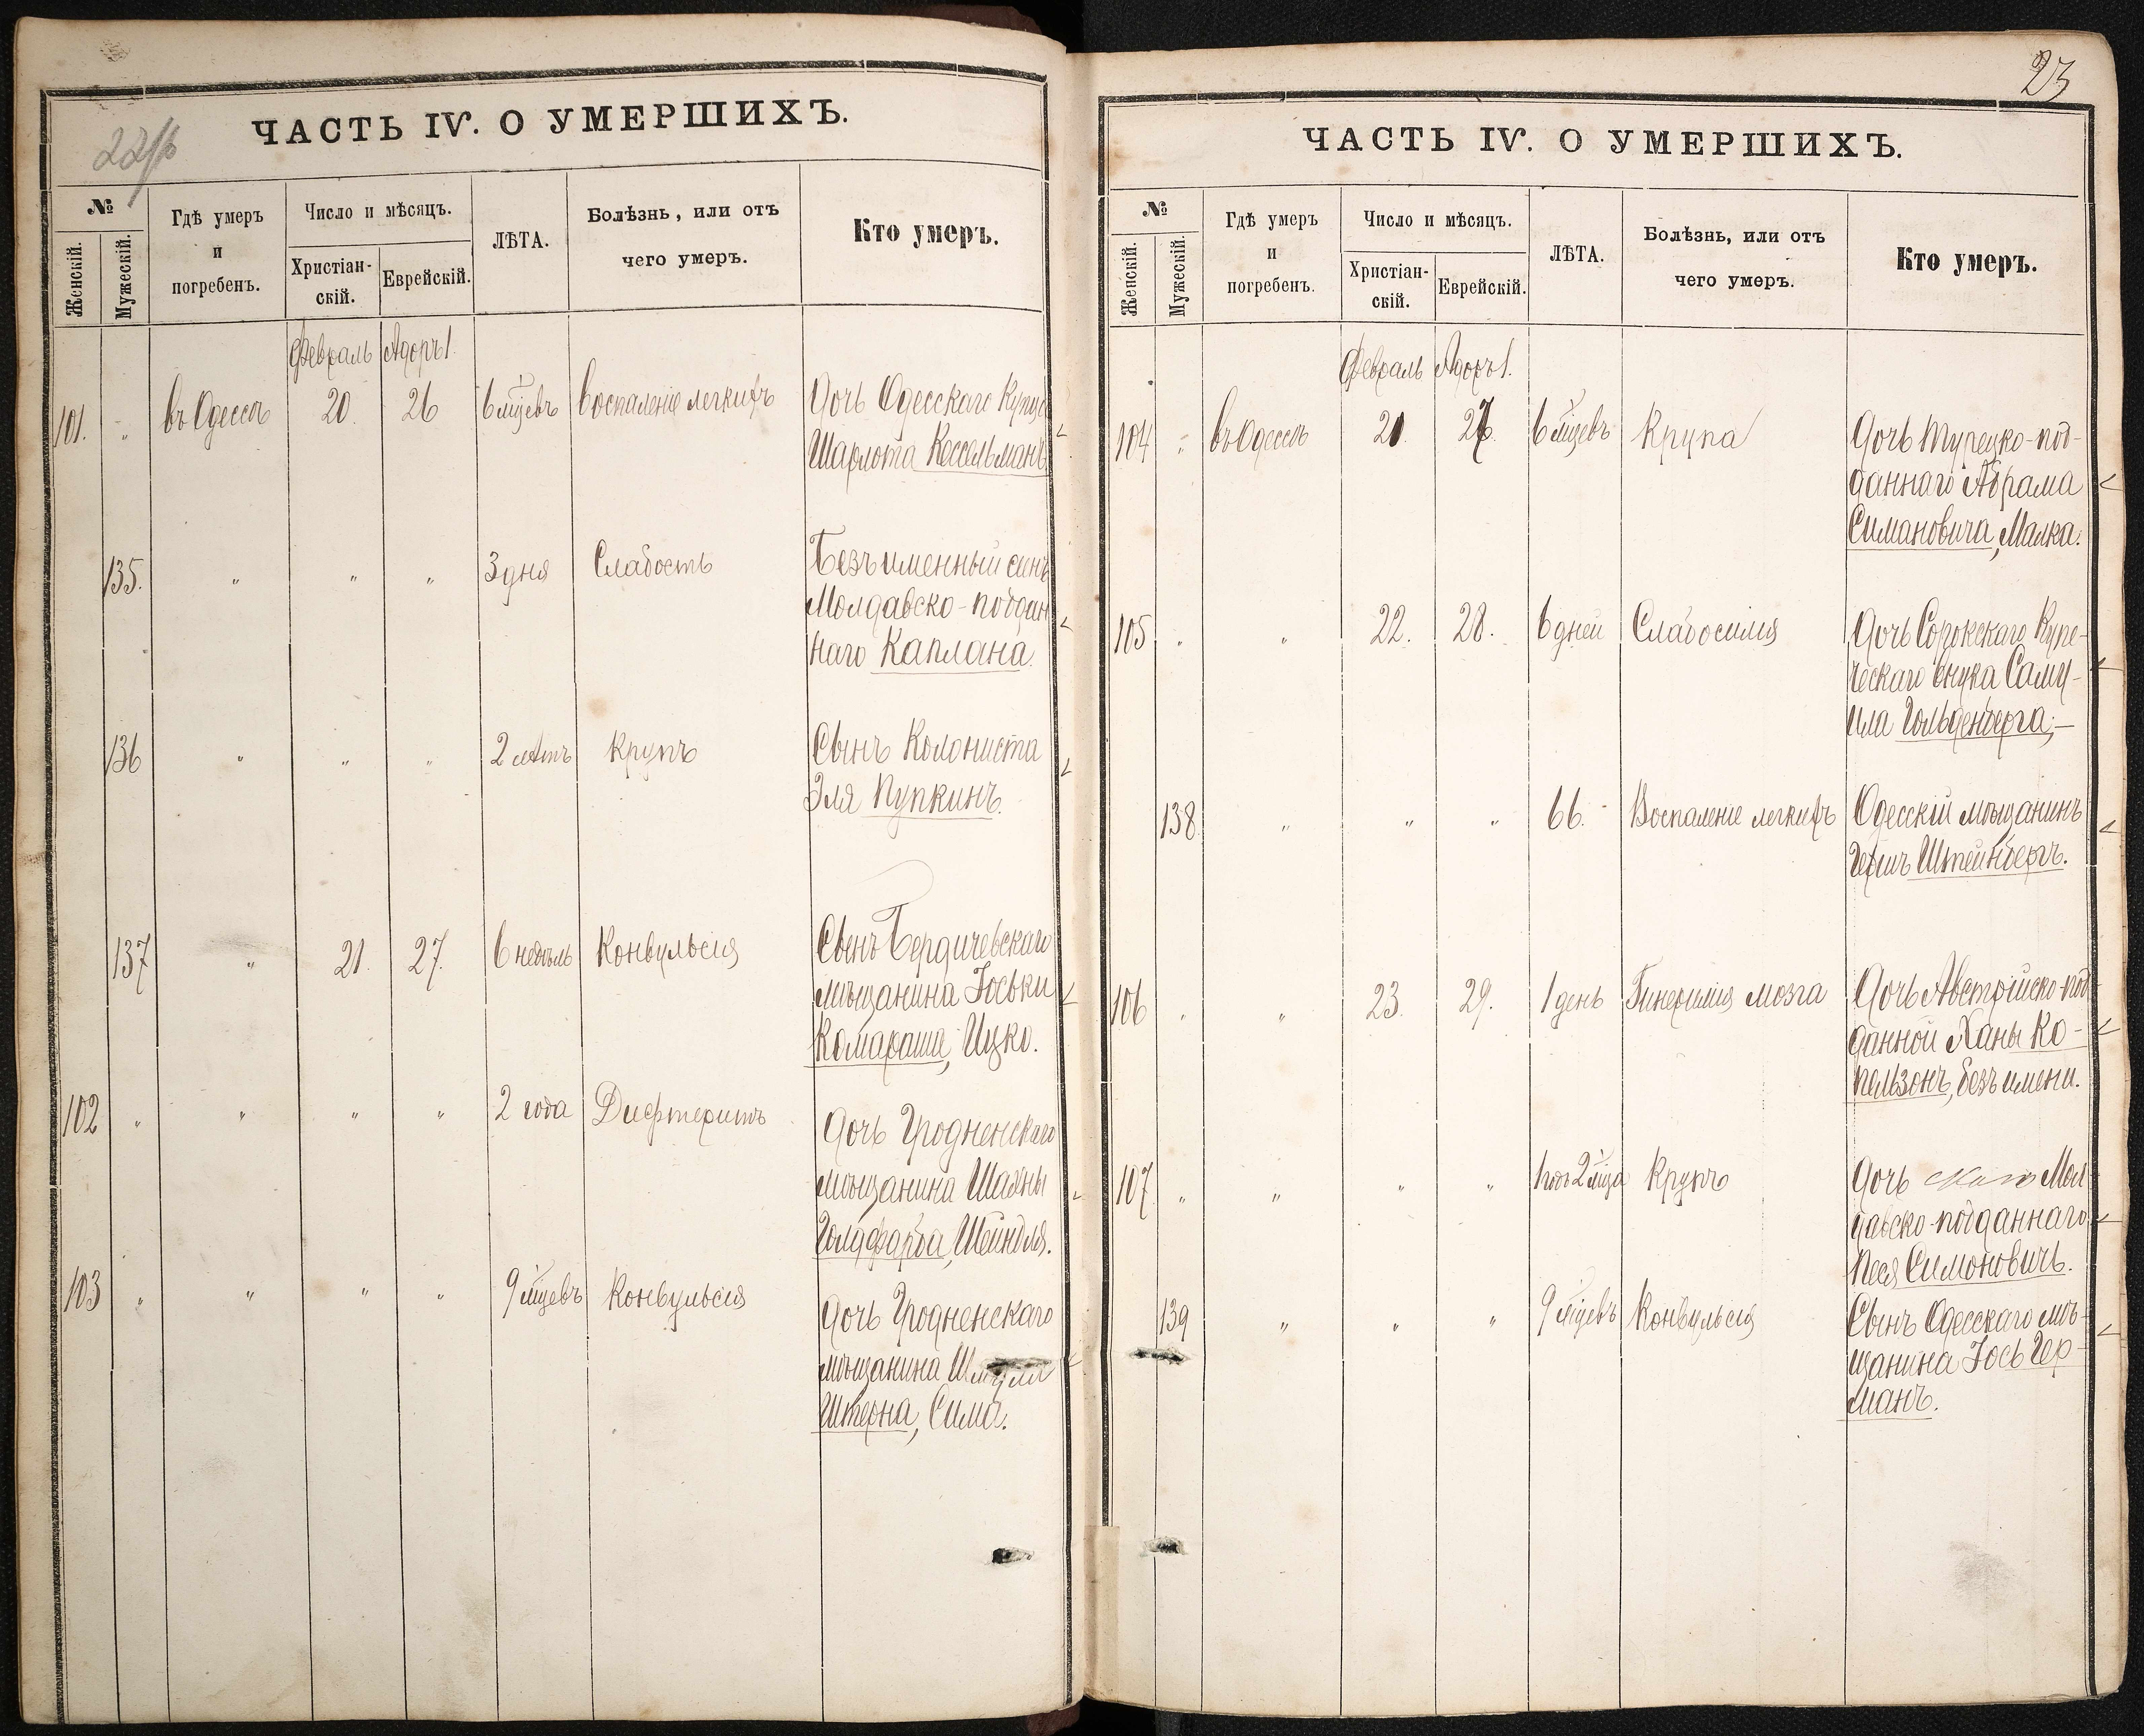 22/b
ЧАСТЬ IV. О УМЕРШИХЪ.
№
Женскій.
Мужескій.
Гдѣ умеръ
и
погребенъ.
Число и мѣсяцъ.
Христіан-
скій.
Еврейскій.
ЛѢТА.
Болѣзнь, или отъ
чего умеръ.
Кто умеръ.
Февраль Адоръ 1.
101. " въ Одессѣ 20. 26 6 мѣцевъ воспаленіе легкихъ Дочь Одесскаго Купца
Шарлота Кессельманъ.
135. " " " 3 дня Слабость Безъименный сынъ
Молдавско-поддан
наго Каплана.
136 " " " 2 лѣтъ крупъ Сынъ Колониста
Эля Пупкинъ.
137 " 21. 27. 6 недѣль Конвульсія Сынъ Бердичевскаго
мѣщанина Іоськи
Комараша, Ицко.
102 " " " " 2 года Дифтеритъ Дочь Гродненскаго
мѣщанина Шахны
Голдфарба, Шейндля.
103 " " " " 9 мѣцевъ Конвульсія Дочь Гродненскаго
мѣщанина Шмуля
Штерна, Сима.
23
ЧАСТЬ IV. О УМЕРШИХЪ.
№
Женскій.
Мужескій.
Гдѣ умеръ
и
погребенъ.
Число и мѣсяцъ.
Христіан-
скій.
Еврейскій.
ЛѢТА.
Болѣзнь, или отъ
чего умеръ.
Кто умеръ.
Февраль Адоръ 1.
104 " въ Одессѣ 21. 27. 6 мѣцевъ Крупа Дочь Турецко-под-
даннаго Абрама
Симановича, Малка.
105 " " 22. 28. 6 дней Слабосилія Дочь Сорокскаго Купе-
ческаго внука Саму-
ила Гольденберга;—
138 " " " 66. Воспаленіе легкихъ Одесскій мѣщанинъ
Гершъ Штейнбергъ.
106 " " 23. 29. 1 день Гинеримія мозга Дочь Австрійско-под
данной Ханы Ко-
пельзонъ, безъ имени.
107 " " " " 1 годъ 2 мѣца Крупъ Дочь Мол
давско-подданнаго
Песя Симоновичъ.
139 " " " 9 мѣцевъ Конвульсія Сынъ Одесскаго мѣ-
щанина Іось Гер-
манъ.